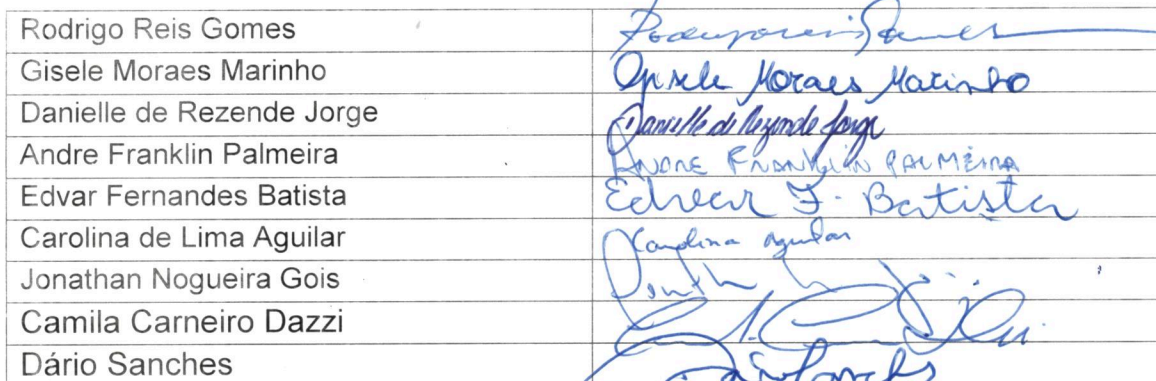 Rodrigo Reis Gomes
Gisele Moraes Marinho Gisele Moraes Marinho
Danielle de Rezende Jorge Danielle de Rezende Jorge
Andre Franklin Palmeira ANDRE FRANKLIN PALMEIRA
Edvar Fernandes Batista Edvar F. Batista
Carolina de Lima Aguilar Carolina Aguilar
Jonathan Nogueira Gois
Camila Carneiro Dazzi
Dário Sanches